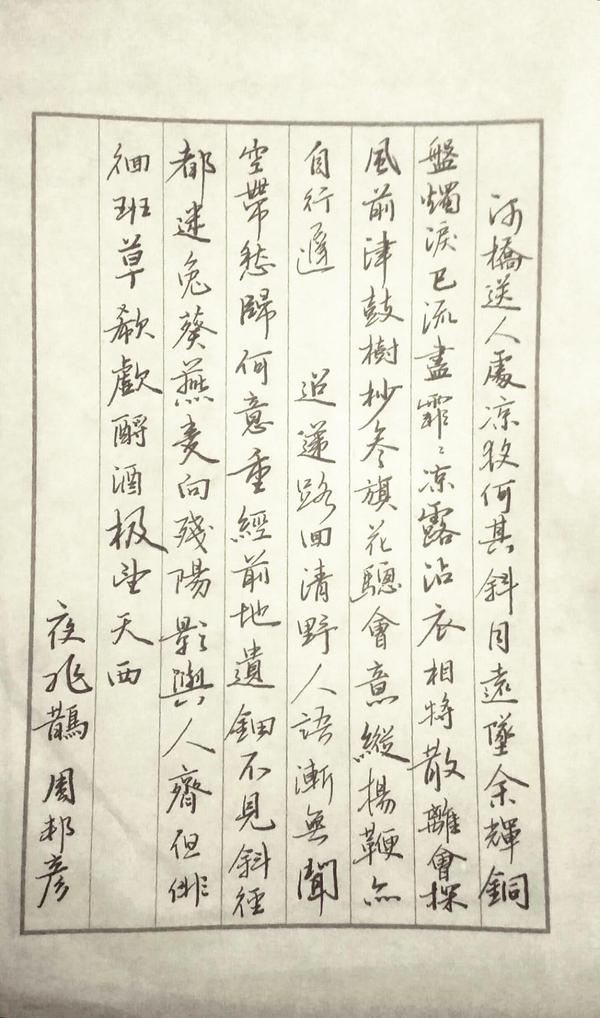 河橋送人處凉夜何其斜月遠墜余輝銅
盤燭淚已流盡霏〻凉露沾衣相將散離會探
風前津鼓樹杪參旗花驄會意縱揚鞭亦
自行遲 迢递路回清野人語漸無聞
空帶愁歸何意重經前地遺鈿不見斜徑
都迷兔葵燕麦向殘陽影與人齊但徘
徊班草欷歔酹酒极望天西
夜飛鵲 周邦彦